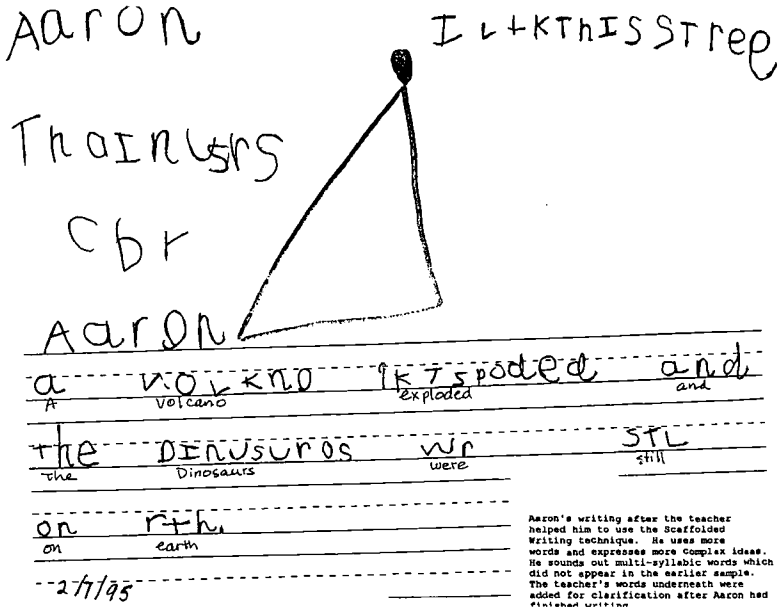 Aaron
I LtKThISSTree
ThaINUsrs
Cbr
AarON
a VOLKNO IKTSpoded and
A Volcano exploded and
the DINUSUROS Wr STL
The Dinosaurs were still
on rth.
on earth
2/7/95
Aaron's writing after the teacher
helped him to use the Scaffolded
Writing technique. He uses more
words and expresses more complex ideas.
He sounds out multi-syllabic words which
did not appear in the earlier sample.
The teacher's words underneath were
added for clarification after Aaron had
finished writing